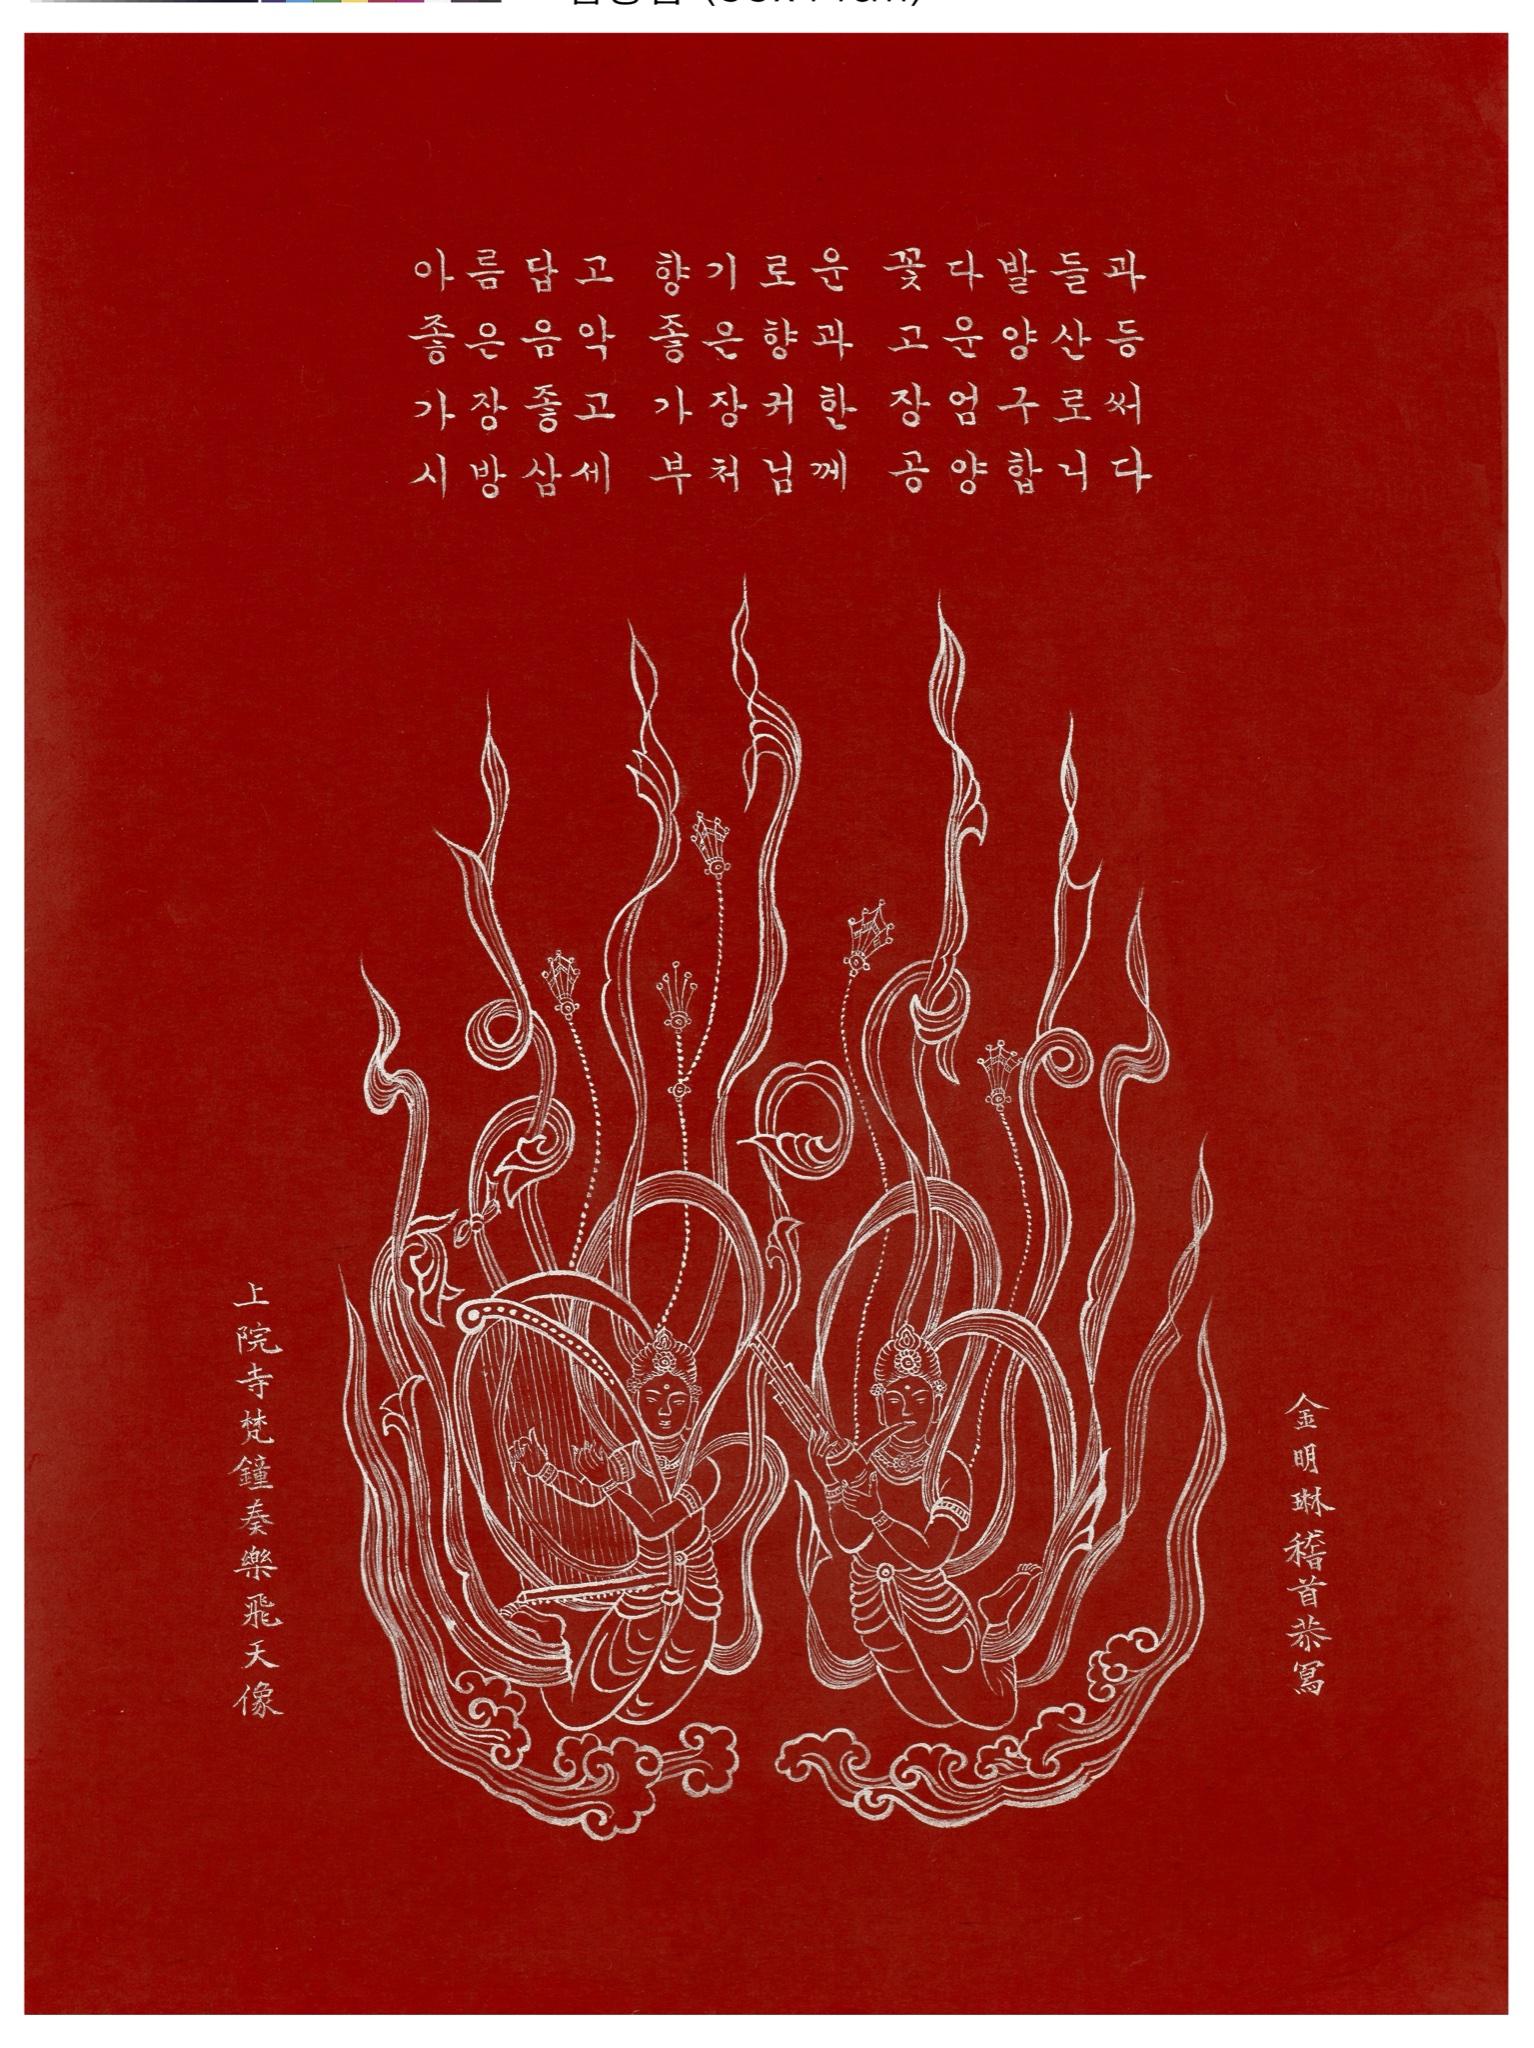 아름답고 향기로운 꽃다발들과
좋은음악 좋은향과 고운양산등
가장좋고 가장귀한 장엄구로써
시방삼세 부처님께 공양합니다
上院寺梵鐘奏樂飛天像
金明琳稽首恭寫